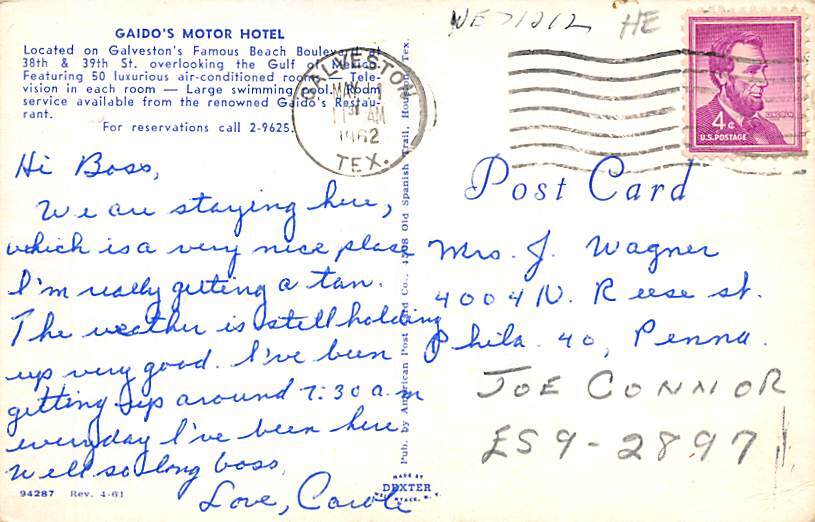 GAIDO'S MOTOR HOTEL
Located on Galveston's Famous Beach Boulevard at
38th & 39th St. overlooking the Gulf of Mexico.
Featuring 50 luxurious air-conditioned rooms — Tele-
vision in each room — Large swimming pool. Room
service available from the renowned Gaido's Restau-
rant.
For reservations call 2-9625.
GALVESTON
MAY
11 30 AM
1962
TEX.
HE
4¢
U.S. POSTAGE
LINCOLN
Post Card
Hi Boss,
We are staying here,
which is a very nice place
I'm really getting a tan.
The weather is still holding
up very good. I've been
getting up around 7:30 a.m
everyday I've been here
Well so long boss.
Love, Carole
94287 Rev. 4-61
Pub. by American Post Card Co., Old Spanish Trail, Houston, Tex.
MADE BY
DEXTER
Mrs. J. Wagner
4004 N. Reese st.
Phila. 40, Penna.
JOE CONNOR
ES9-2897